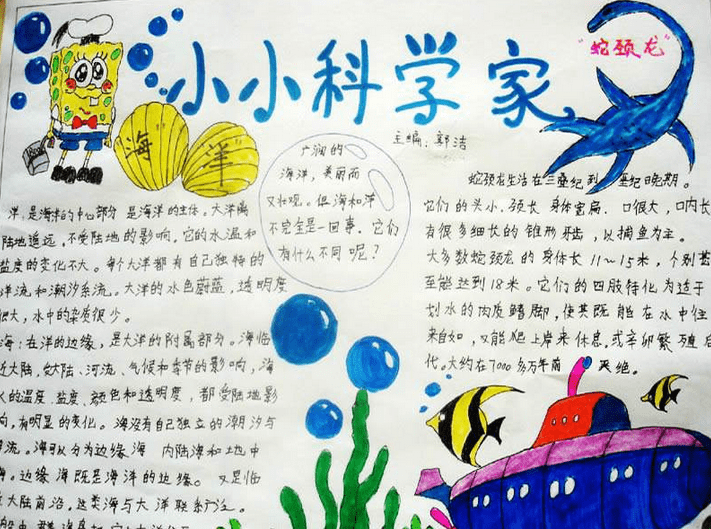 小小科学家
主编：郭洁
"海 洋"
广阔的
海洋，美丽而
又壮观。但海和洋
不完全是一回事，它们
有什么不同呢？
洋：是海洋的中心部分 是海洋的主体。大洋离
陆地遥远，不受陆地的影响，它的水温和
盐度的变化不大。每个大洋都有自己独特的
洋流和潮汐系流。大洋的水色蔚蓝，透明度
很大，水中的杂质很少。
海：在洋的边缘，是大洋的附属部分。海临
近大陆，受大陆、河流、气候和季节的影响，海
水的温度、盐度、颜色和透明度，都受陆地影
响，有明显的变化。海没有自己独立的潮汐与
海流。海可以分为边缘海 内陆海和地中
海。边缘海既是海洋的边缘。又是临
近大陆前沿，这类海与大洋联系广泛。
"蛇颈龙"
蛇颈龙生活在三叠纪到 垩纪晚期。
它们的头小、颈长 身体宽扁、口很大，口内长
有很多细长的锥形牙齿，以捕鱼为主。
大多数蛇颈龙的身体长11～15米，个别甚
至能达到18米。它们的四肢特化为适于
划水的肉质鳍脚，使其既能在水中往
来自如，又能爬上岸来休息，或 繁殖后
代。大约在7000多万年前 灭绝。